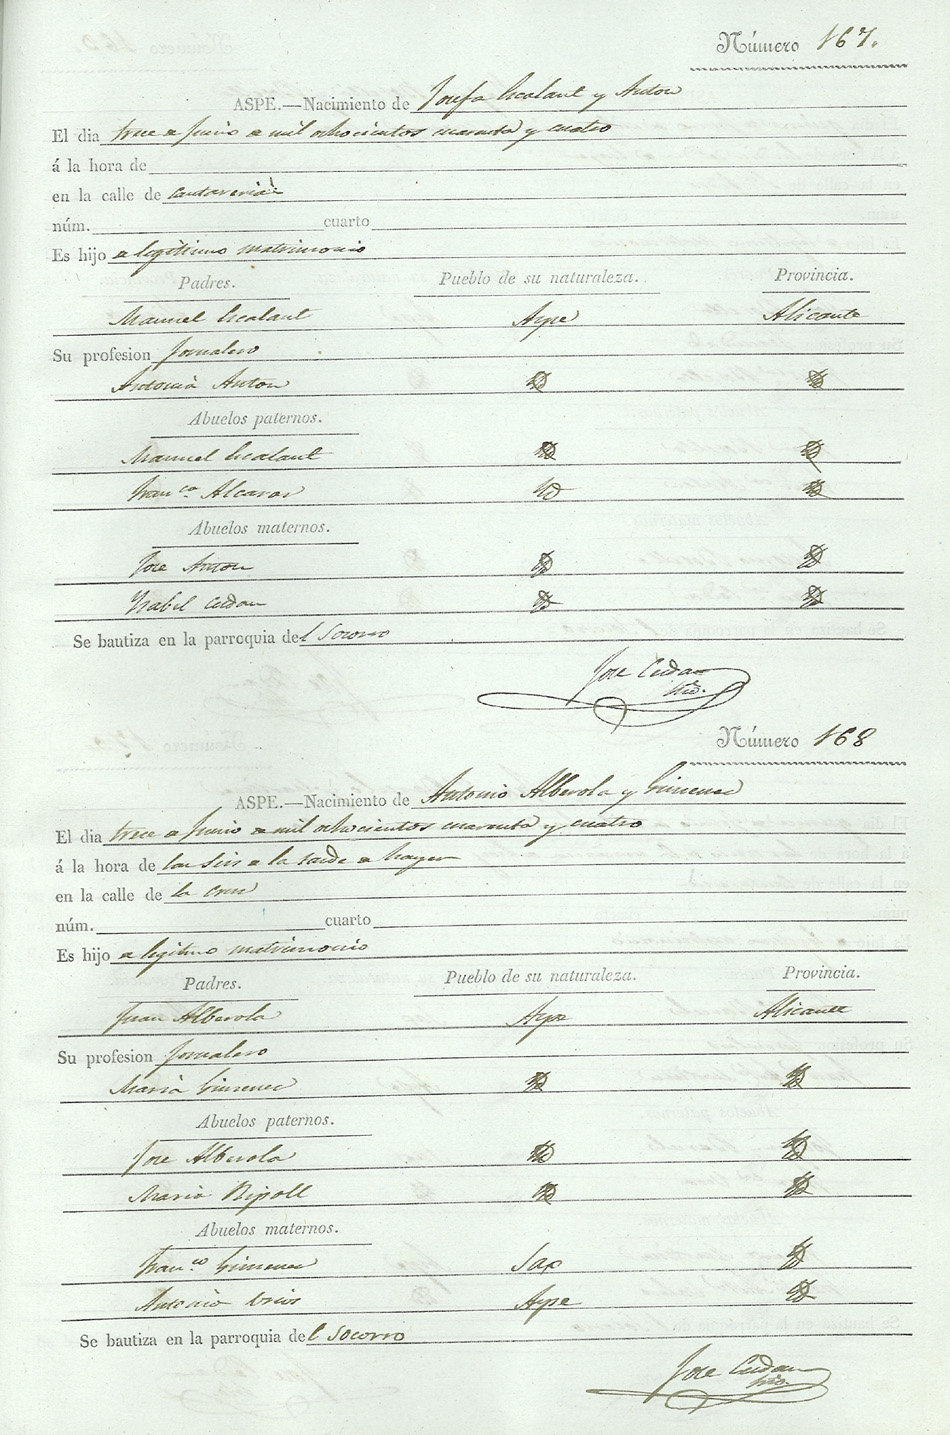 Número 167.
ASPE.—Nacimiento de Josefa Escalant y Anton
El dia trece de Junio de mil ochocientos cuarenta y cuatro
á la hora de
en la calle de
núm. cuarto
Es hijo de legitimo matrimonio
Padres. Pueblo de su naturaleza. Provincia.
Manuel Escalant Aspe Alicante
Su profesion Jornalero
Antonia Anton Id Id
Abuelos paternos.
Manuel Escalant Id Id
Franca Alcaraz Id Id
Abuelos maternos.
Jose Anton Id Id
Ysabel Cerdan Id Id
Se bautiza en la parroquia del Socorro
Jose Cerdan
Número 168
ASPE.—Nacimiento de Antonio Alberola y Gimenez
El dia trece de Junio de mil ochocientos cuarenta y cuatro
á la hora de las seis de la tarde de hayer
en la calle de la Cruz
núm. cuarto
Es hijo de legitimo matrimonio
Padres. Pueblo de su naturaleza. Provincia.
Juan Alberola Aspe Alicante
Su profesion Jornalero
Maria Gimenez Id Id
Abuelos paternos.
Jose Alberola Id Id
Maria Ripoll Id Id
Abuelos maternos.
Franco Gimenez Sax Id
Antonia Aspe Id
Se bautiza en la parroquia del Socorro
Jose Cerdan